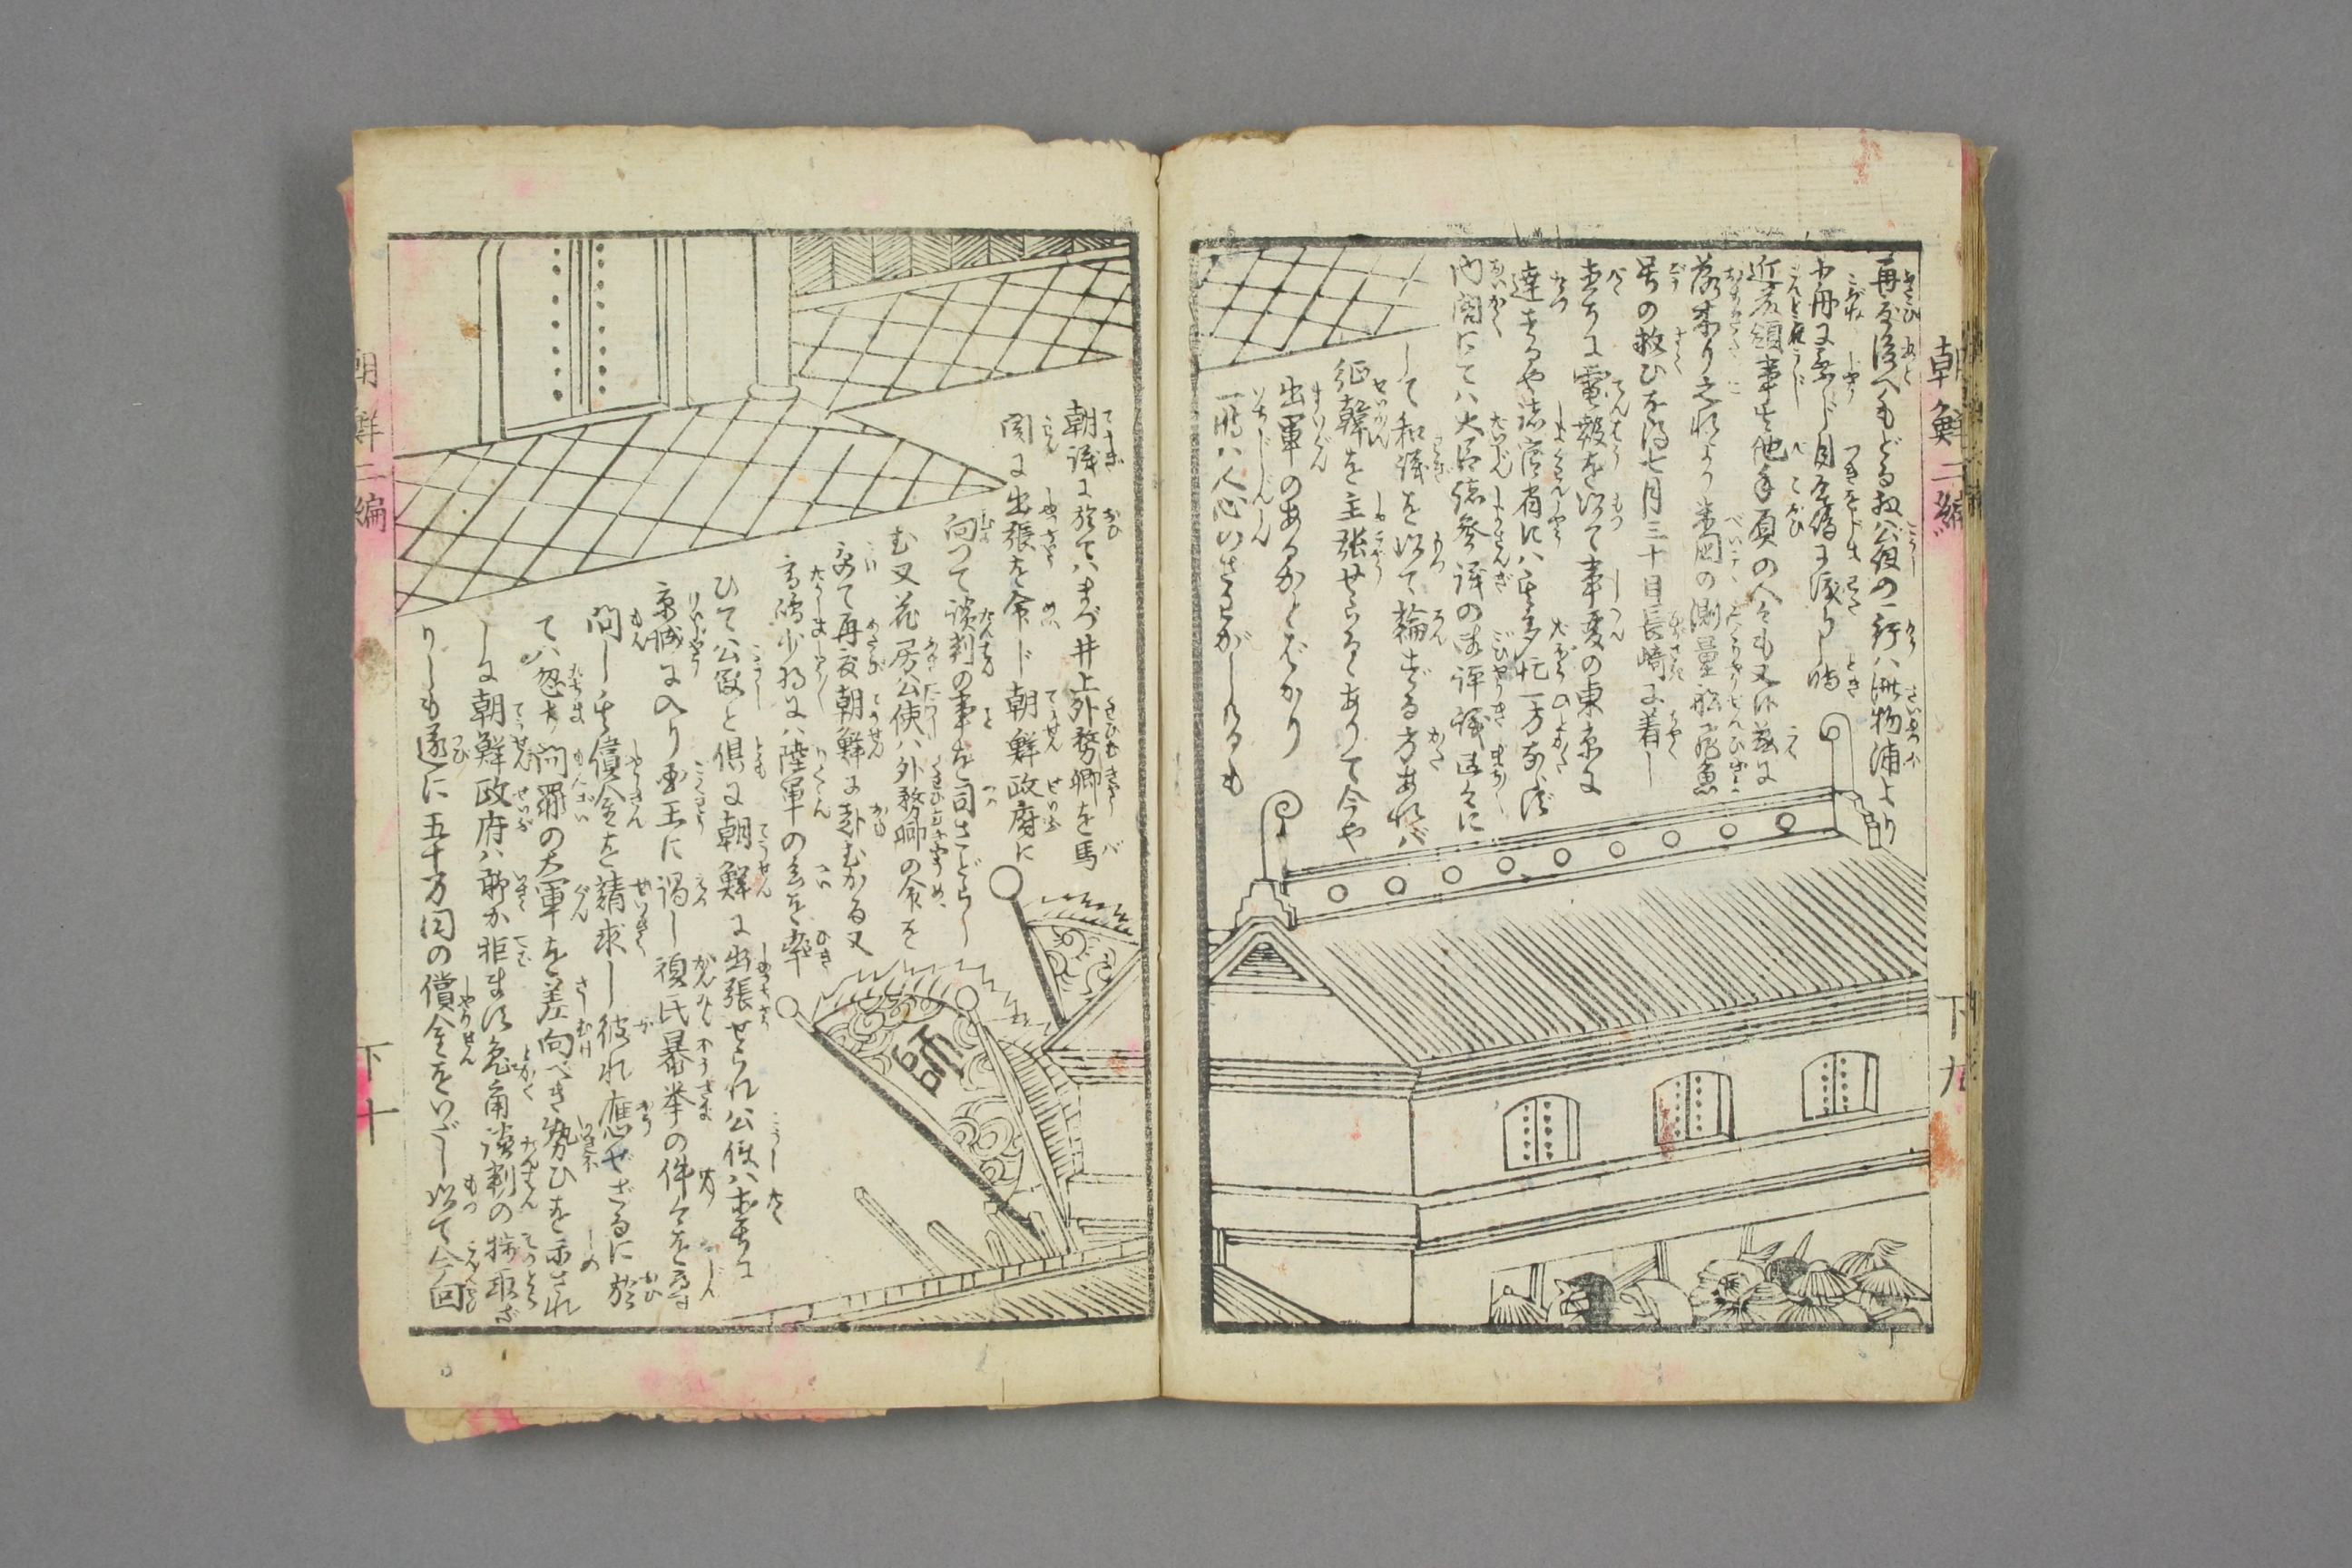 朝鮮二編
下九
再び後へもどる扨公使の一行ハ済物浦より
小舟に乗じ月尾嶋に渡りし時
近藤領事其他手負の人々も又茲に
落来り之れより米国の測量船飛魚
号の救ひを得七月三十日長崎に着し
直ちに電報を以て事変の東京に
達するや諸官省にハ其多忙一方ならず
内閣にてハ大臣諸参議の御評議区々に
して和議を以て論ずる方あれバ
征韓を主張せらるゝありて今や
出軍のあるかとばかり
一時ハ人心いさましがりしも
朝議に於てハまづ井上外務卿を馬
関に出張を命じ朝鮮政府に
向つて談判の事を司さどらし
む又花房公使ハ外務卿の命を
承て再度朝鮮に赴むかる又
高嶋少将にハ陸軍の兵を率
ひて公使と倶に朝鮮に出張せられ公使ハ直ちに
京城に入り国王に謁し頑民暴挙の件々を尋
問し其償金を請求し彼れ應ぜざるに於
てハ忽ち問罪の大軍を差向べき勢ひを示され
しに朝鮮政府ハ聊か拒ます兎角談判の捗取ざ
りしも遂に五十万円の償金をいだし以て今回
師
朝鮮二編
下十